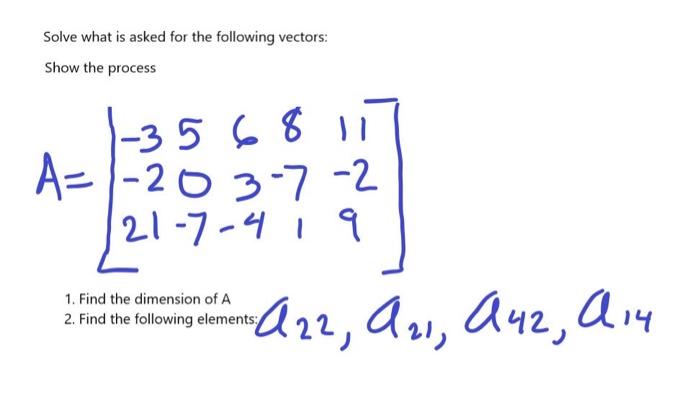 Solve what is asked for the following vectors:
Show the process
-3 5 6 8 11
A= -2 0 3 -7 -2
21 -7 -4 1 9
1. Find the dimension of A
2. Find the following elements: a22, a21, a42, a14